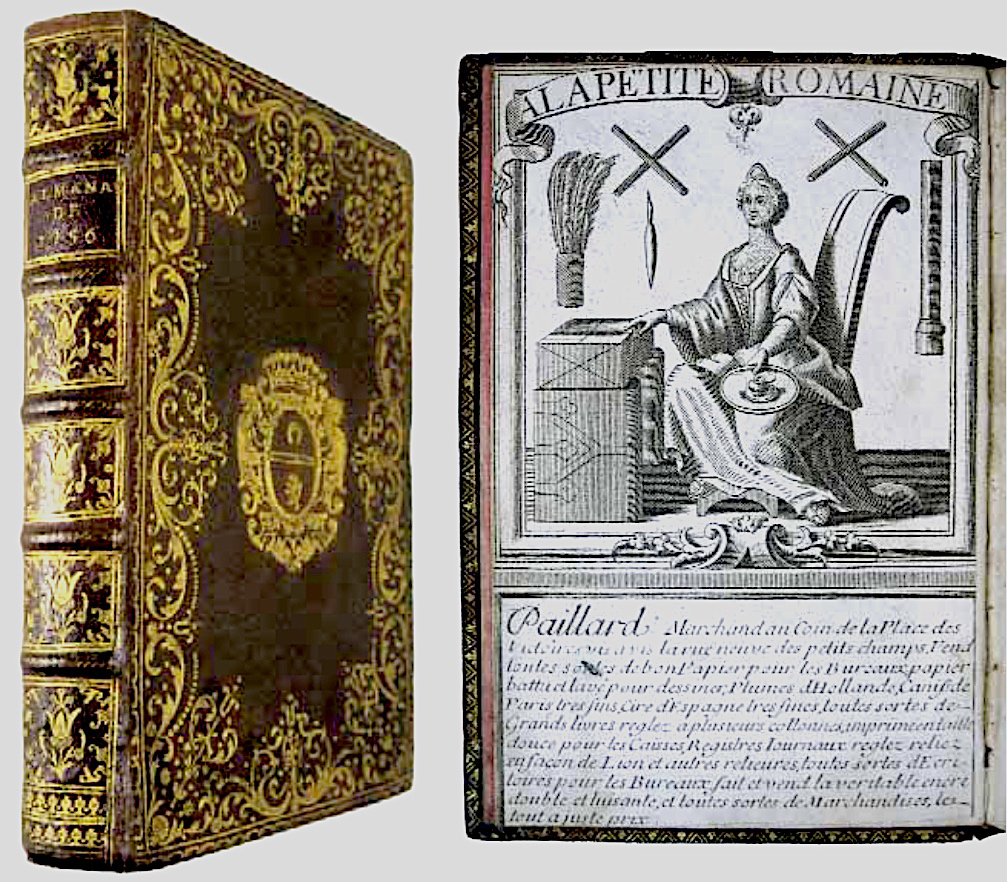 ALMANA
DE
1756
A LA PETITE ROMAINE
Paillard Marchand au Coin de la Place des
la rue neuve des petits champs, Vend
toutes sortes de bon Papier pour les Bureaux, papier
battu et lavé pour dessiner, Plumes d'Hollande, Canifs de
Paris tres fins, Cire d'Espagne tres fines, toutes sortes de
Grands livres reglez a plusieurs collonnes, imprimée en taille
douce pour les Caisses, Registres Iournaux reglez reliez
en façon de Lion et autres relieures, toutes sortes d'Ecri-
toires pour les Bureaux, fait et vend la veritable encre
double et luisante, et toutes sortes de Marchandises, les
tout a juste prix